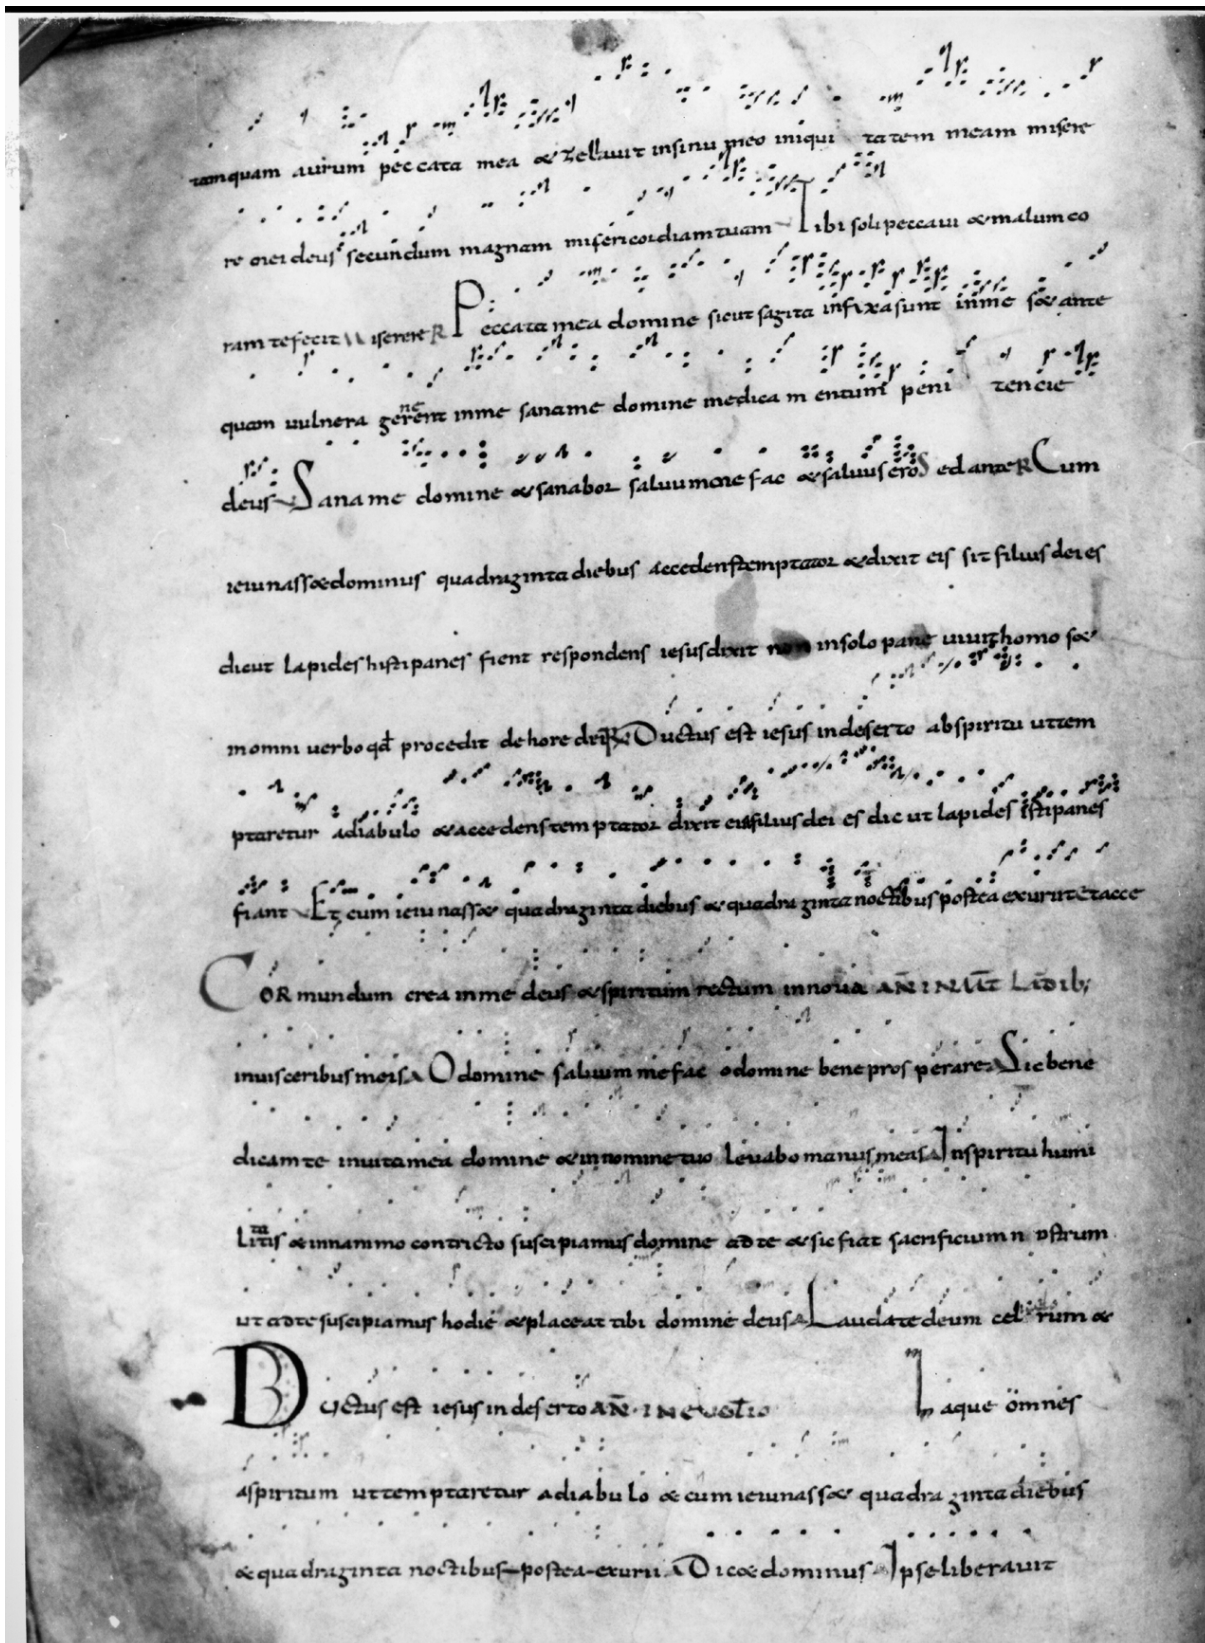 tamquam aurum peccata mea & zellavit in sinu meo iniqui tatem meam misere
re mei deus secundum magnam misericordiam tuam Tibi soli peccavi & malum co
ram te feci t Miserere R Peccata mea domine sicut sagita infixa sunt in me s& ante
quam vulnera generent in me sana me domine medicamentum peni tencie
deus Sana me domine & sanabor salvum me fac & salvus ero Sed ante R Cum
ieiunass& dominus quadraginta diebus accedens temptator & dixit eis si t filius dei es
dic ut lapides histi panes fient respondens iesus dixit non in solo pane vivit homo s&
in omni verbo qd procedit de hore dei R Ductus est iesus in deserto ab spiritu ut tem
ptaretur a diabulo & accedens temptator dixit ei si filius dei es dic ut lapides isti panes
fiant Et cum ieiunass& quadraginta diebus & quadraginta noctibus postea exuriit Et acce
COR mundum crea in me deus & spiritum rectum innova AN IN LAUDIB;
in visceribus meis O domine salvum me fac o domine bene prosperare Sic bene
dicam te in vita mea domine & in nomine tuo levabo manus meas In spiritu humi
litatis & in nammo contricto suscipiamus domine ad te & sic fiat sacrificium n ostrum
ut ad te suscipiamus hodie & placeat tibi domine deus Laudate deum celorum &
Ductus est iesus in deserto AN. IN EVGLIO Itaque omnes
a spiritum ut temptaretur a diabulo & cum ieiunass& quadraginta diebus
& quadraginta noctibus postea exurii Dic& dominus Ipse liberavit